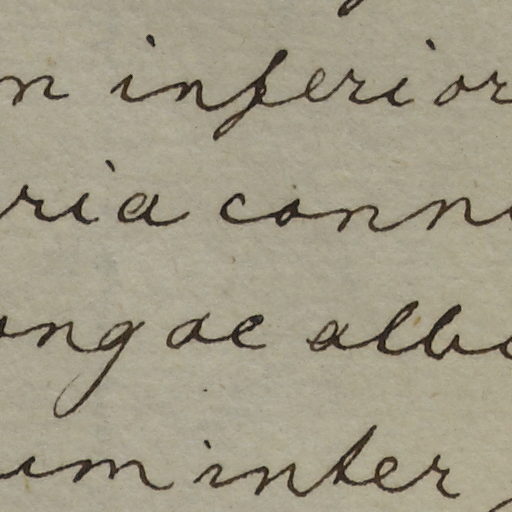 n inferior
ria conn
ongae alba
um inter